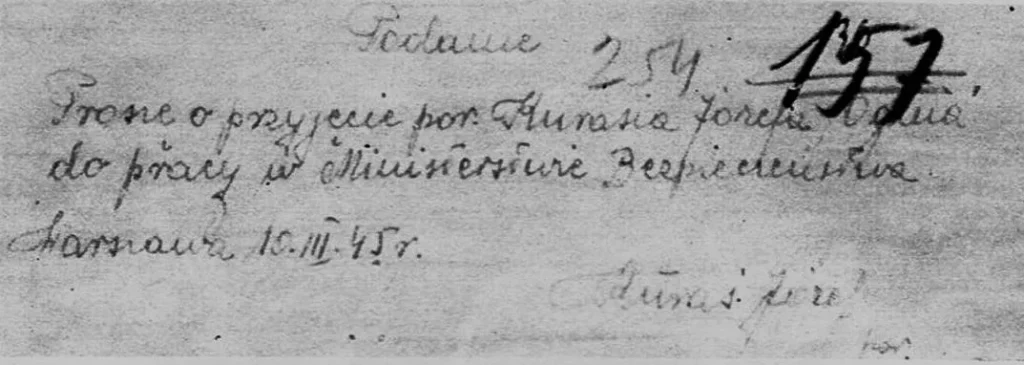 Podanie
254 157
Proszę o przyjęcie por. Kurasia Józefa, Ognia,
do pracy w Ministerstwie Bezpieczeństwa.
Warszawa 10.III.45r.
Kuraś Józef
por.